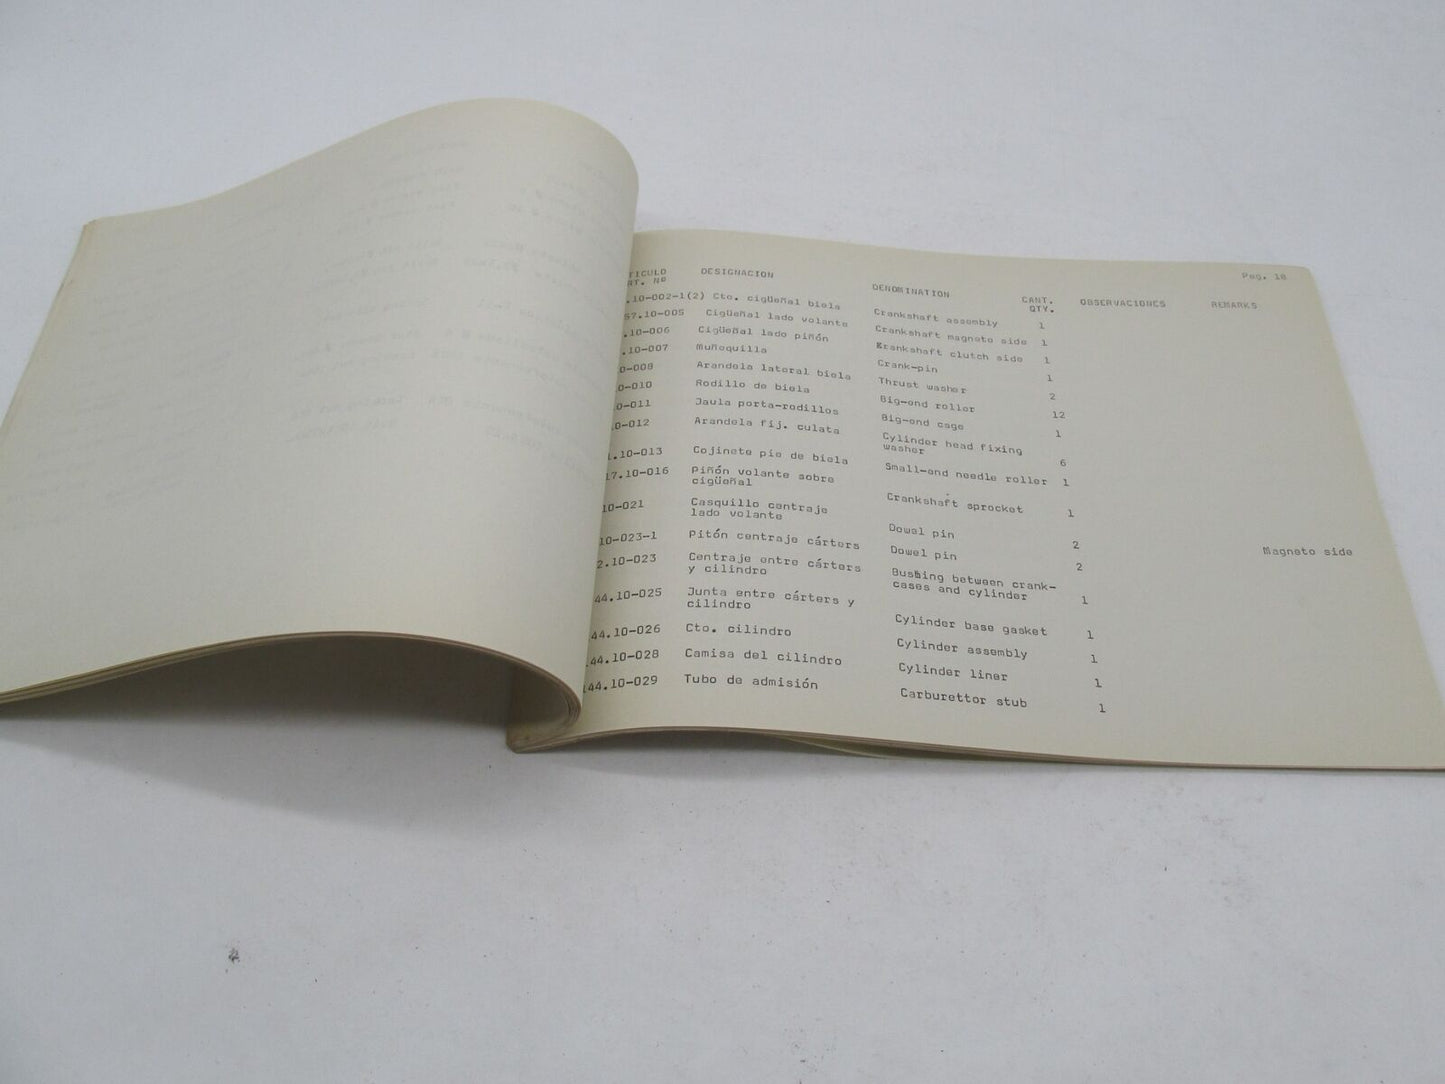 Pag. 10
TICULO DESIGNACION DENOMINATION CANT. OBSERVACIONES REMARKS
RT. Nº QTY.
.10-002-1(2) Cto. cigüeñal biela Crankshaft assembly 1
57.10-005 Cigüeñal lado volante Crankshaft magneto side 1
.10-006 Cigüeñal lado piñón Crankshaft clutch side 1
.10-007 Muñequilla Crank-pin 1
0-008 Arandela lateral biela Thrust washer 2
0-010 Rodillo de biela Big-end roller 12
0-011 Jaula porta-rodillos Big-end cage 1
0-012 Arandela fij. culata Cylinder head fixing
washer 6
1.10-013 Cojinete pie de biela Small-end needle roller 1
17.10-016 Piñón volante sobre Crankshaft sprocket 1
cigüeñal
10-021 Casquillo centraje Dowel pin 2
lado volante
10-023-1 Pitón centraje cárters Dowel pin 2 Magneto side
2.10-023 Centraje entre cárters Bushing between crank-
y cilindro cases and cylinder 1
44.10-025 Junta entre cárters y Cylinder base gasket 1
cilindro
44.10-026 Cto. cilindro Cylinder assembly 1
44.10-028 Camisa del cilindro Cylinder liner 1
144.10-029 Tubo de admisión Carburettor stub 1